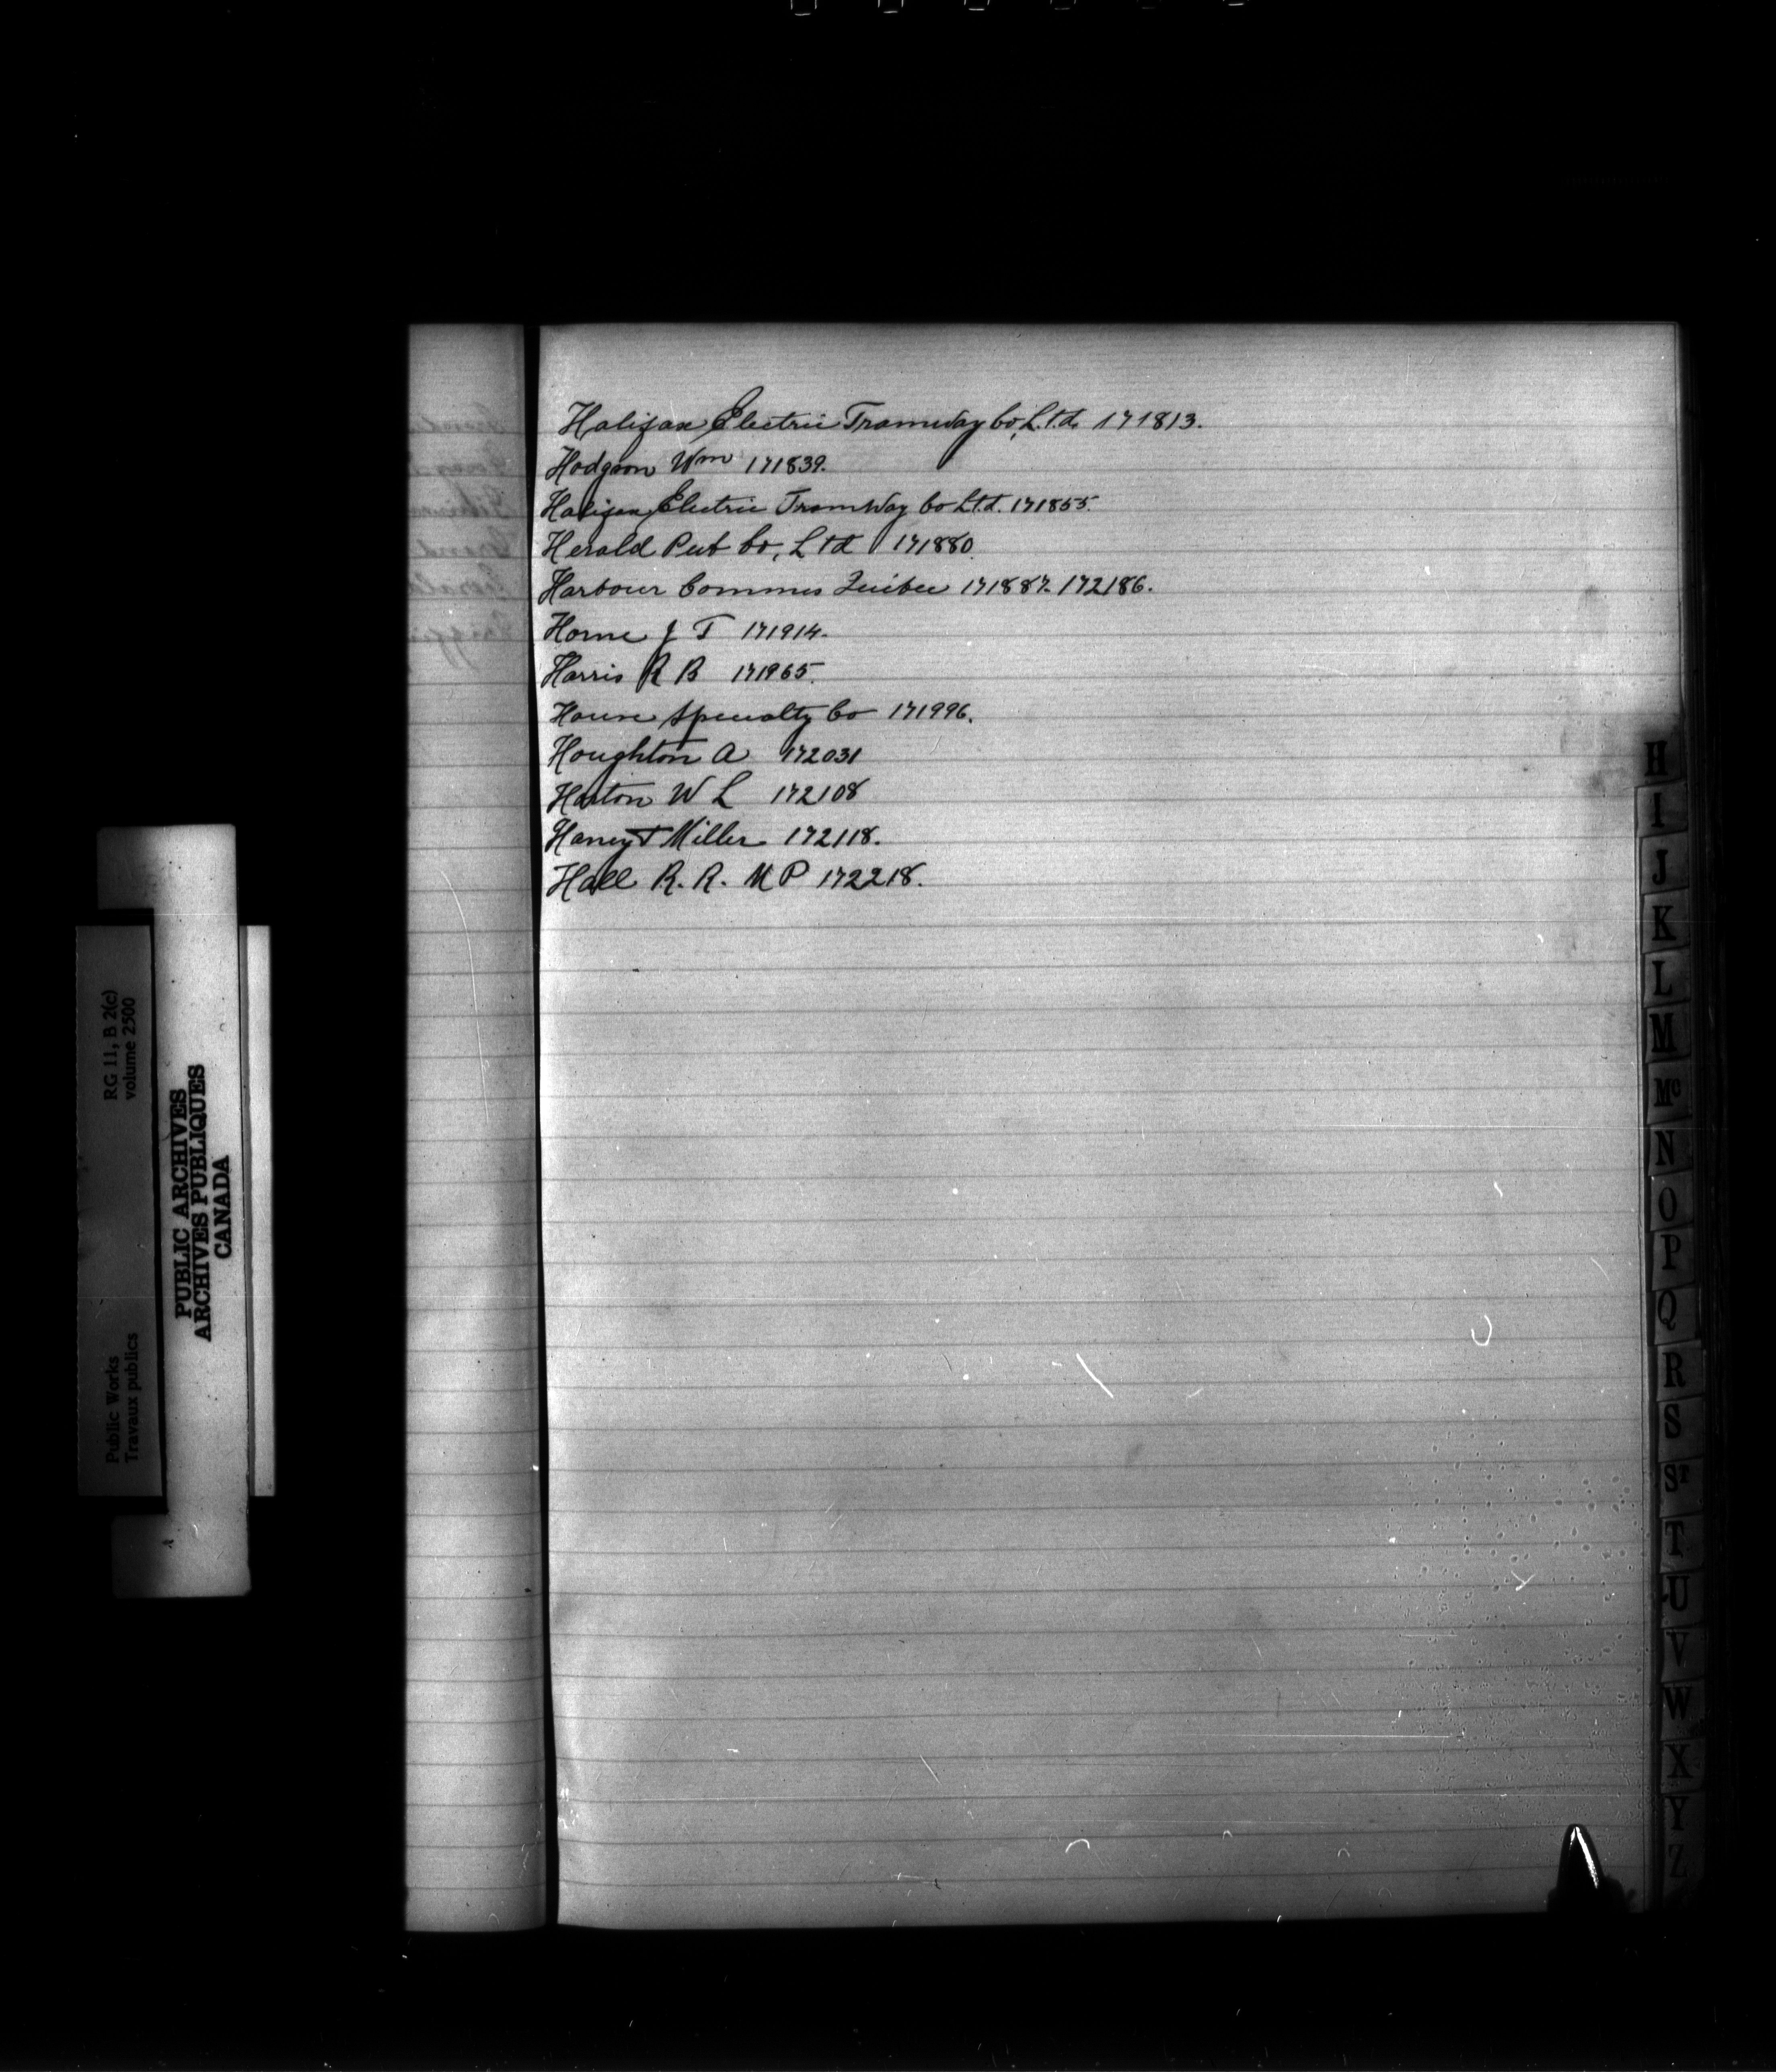 Halifax Electric Tramway Co, Ltd. 171813.
Hodgson Wm 171839.
Halifax Electric TramWay Co Ltd. 171855.
Herald Pub Co, Ltd 171880.
Harbour Commrs Quebec 171887. 172186.
Horne J T 171914.
Harris R B 171965.
House Specialty Co 171996.
Houghton A 172031
W L 172108
Haney & Miller 172118.
Hall R. R. M P 172218.
H
I
J
K
L
M
Mc
N
O
P
Q
R
S
ST
T
U
V
W
X
Y
Z
RG 11, B 2(c)
volume 2500
Public Works
Travaux publics
PUBLIC ARCHIVES
ARCHIVES PUBLIQUES
CANADA